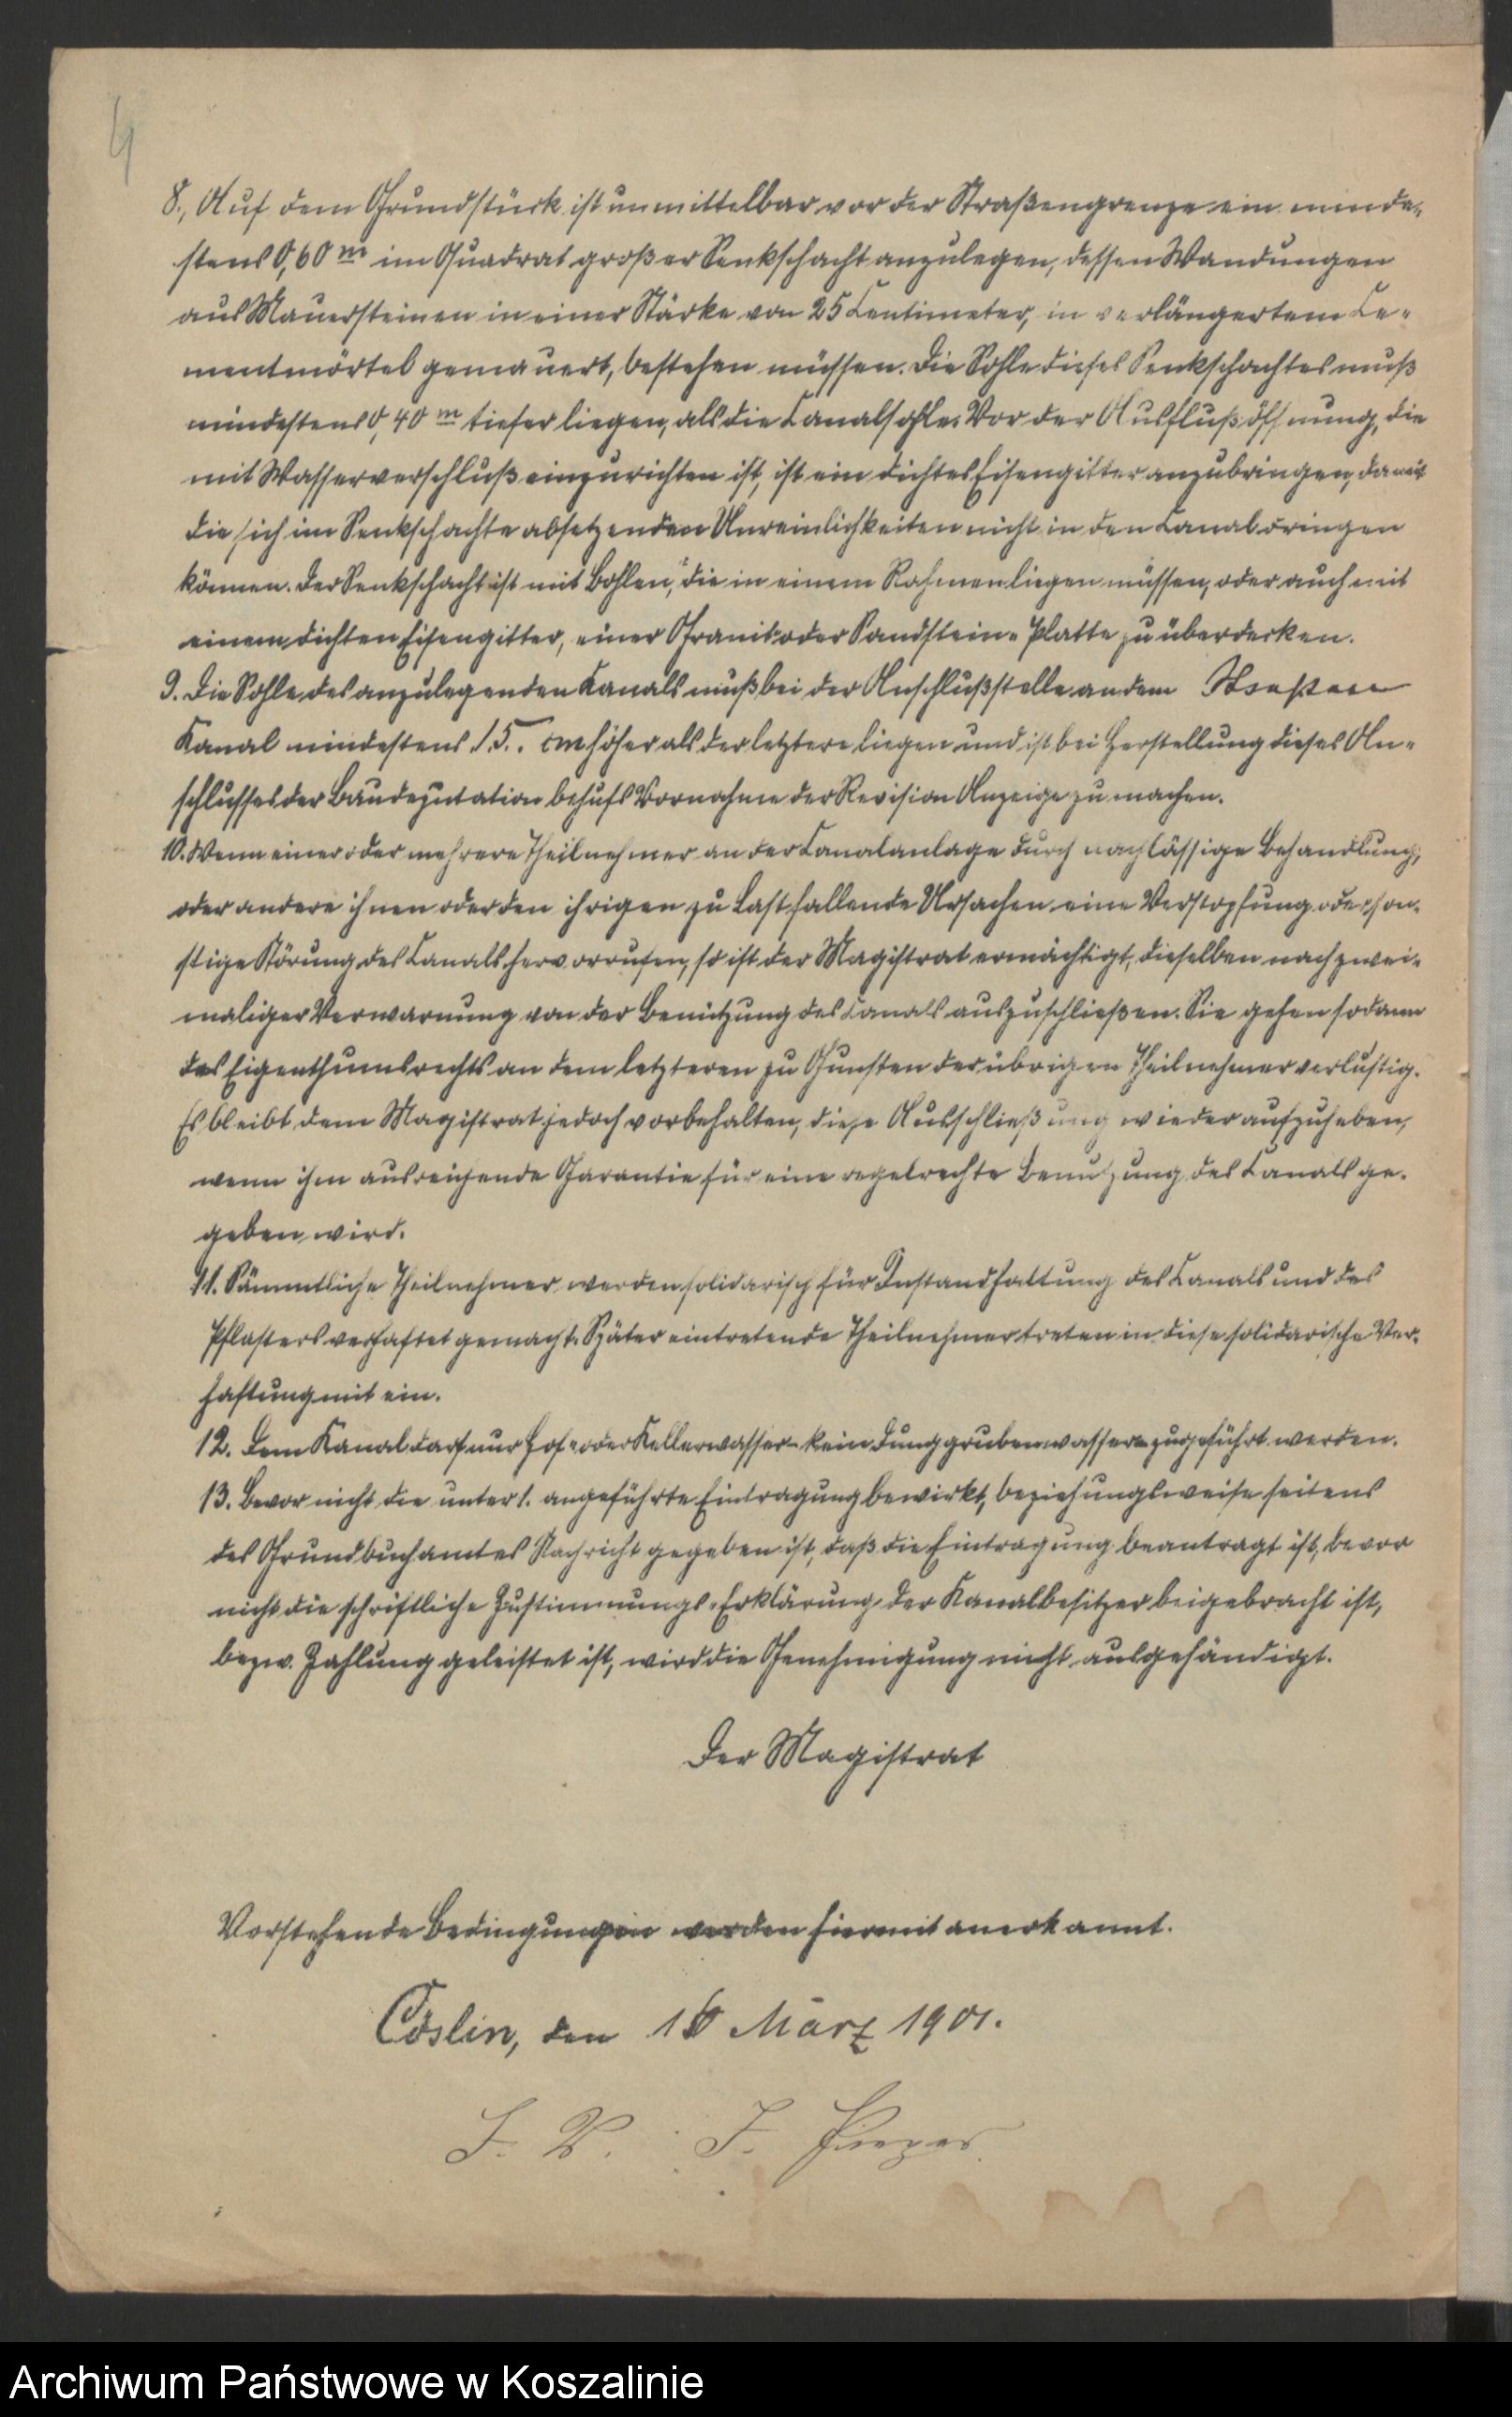 4
8., Auf dem Grundstück ist unmittelbar vor der Straßengrenze ein minde-
stens 0,60 m im Quadrat großer Senkschacht anzulegen, dessen Wandungen
aus Mauersteinen in einer Stärke von 25 Centimeter, in verlängertem Ce-
mentmörtel gemauert, bestehen müssen. Die Sohle dieses Senkschachtes muß
mindestens 0,40 m tiefer liegen, als die Canalsohle. Vor der Ausflußöffnung, die
mit Wasserverschluß einzurichten ist, ist ein dichtes Eisengitter anzubringen, damit
die sich im Senkschachte absetzenden Unreinlichkeiten nicht in den Canal dringen
können. Der Senkschacht ist mit Bohlen, die in einem Rahmen liegen müssen, oder auch mit
einem dichten Eisengitter, einer Granit oder Sandstein-Platte zu überdecken.
9. Die Sohle des anzulegenden Kanals muß bei der Anschlußstelle an dem Straßen
Kanal mindestens 15. cm höher als der letztere liegen und ist bei Herstellung dieses An-
schlusses der Baudeputation behufs Vornahme der Revision Anzeige zu machen.
10. Wenn einer oder mehrere Theilnehmer an der Canalanlage durch nachlässige Behandlung,
oder andere ihnen oder den ihrigen zu Last fallende Ursachen eine Verstopfung oder son-
stige Störung des Canals hervorrufen, so ist der Magistrat ermächtigt, dieselben nach zwei-
maliger Verwarnung von der Benützung des Canals auszuschließen. Sie gehen sodann
des Eigenthumsrechts an dem letzteren zu Gunsten der übrigen Theilnehmer verlustig.
Es bleibt dem Magistrat jedoch vorbehalten, diese Ausschließung wieder aufzuheben,
wenn ihm ausreichende Garantie für eine regelrechte Benutzung des Canals ge-
geben wird.
11. Sämmtliche Theilnehmer werden solidarisch für Instandhaltung des Canals und des
Pflasters verhaftet gemacht. Später eintretende Theilnehmer treten in diese solidarische Ver-
haftung mit ein.
12. Dem Kanal darf nur Hof- oder Kellerwasser - kein Dunggrubenwasser zugeführt werden.
13. Bevor nicht die unter 1. angeführte Eintragung bewirkt, beziehungsweise seitens
des Grundbuchamtes Nachricht gegeben ist, daß die Eintragung beantragt ist, bevor
nicht die schriftliche Zustimmungs-Erklärung der Kanalbesitzer beigebracht ist,
bezw. Zahlung geleistet ist, wird die Genehmigung nicht ausgehändigt.
Der Magistrat
Vorstehende Bedingungen werden hiermit anerkannt.
Cöslin, den März 1901.
J. V. J.
Archiwum Państwowe w Koszalinie